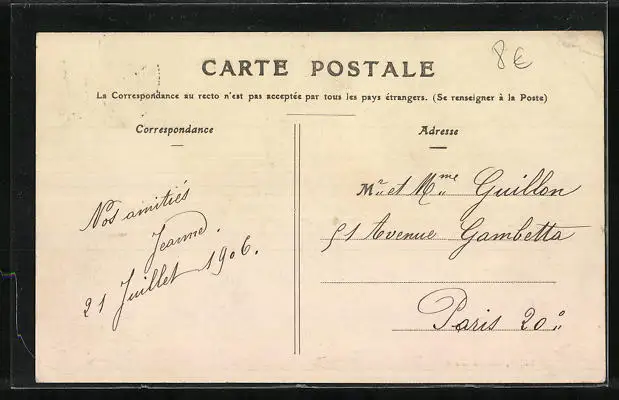 8€
CARTE POSTALE
La Correspondance au recto n'est pas acceptée par tous les pays étrangers. (Se renseigner à la Poste)
Correspondance
Nos amitiés
Jeanne.
21 Juillet 1906.
Adresse
Mr et Mme Guillon
51 Avenue Gambetta
Paris 20e